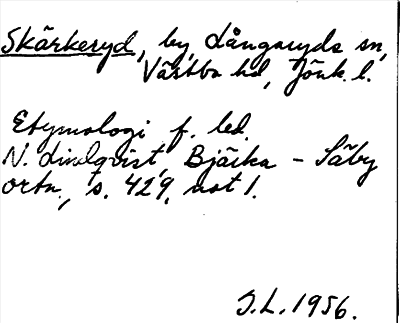 Skärkeryd, by, Långaryds sn,
Västbo hd, Jönk. l.
Etymologi f. led.
N. Lindqvist, Bjärka - Säby
ortn., s. 429, not 1.
S.L. 1956.